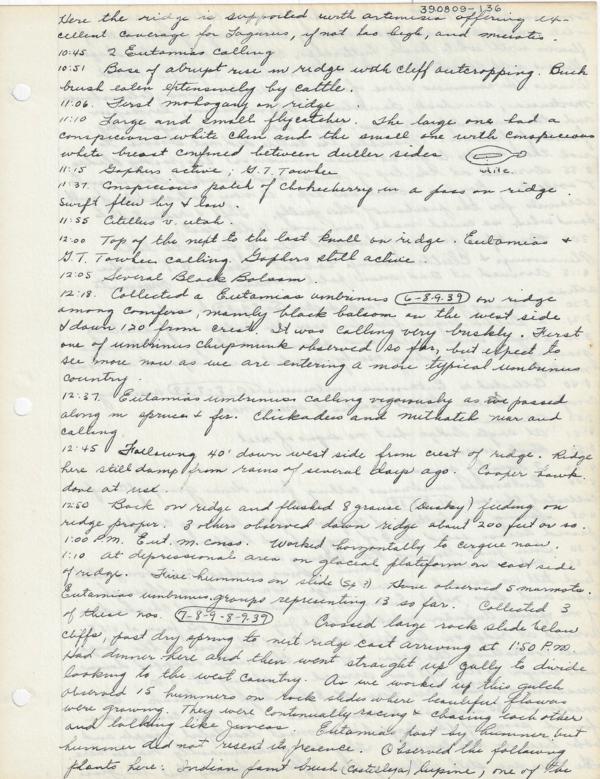 390809-136
Here the ridge is supported with artemisia offering ex-
cellent coverage for Lagurus, if not too high, and microtus.
10:45 2 Eutamias calling
10:51 Base of abrupt rise in ridge with cliff outcropping. Buck
brush eaten extensively by cattle.
11:06. First mahogany on ridge
11:10 Large and small flycatcher. The large one had a
conspicuous white chin and the small one with conspicuous
white breast confined between duller sides
white.
11:15 Gophers active; G.T. Towhee
11:37. Conspicuous patch of chokecherry in a pass on ridge.
Swift flew by & low.
11:55 Citellus v. utah.
12:00 Top of the next to the last knoll on ridge. Eutamias &
G.T. Towhee calling. Gophers still active.
12:05 Several Black Balsam.
12:18. Collected a Eutamias umbrinus 6-8.9.39 on ridge
among conifers, mainly black balsam on the west side
& down 120 from crest. It was calling very briskly. First
one of umbrinus chipmunk observed so far, but expect to
see more now as we are entering a more typical umbrinus
country.
12:37. Eutamias umbrinus calling vigorously as we passed
along in spruce & fir. Chickadees and nuthatch near and
calling.
12:45 Following 40' down west side from crest of ridge. Ridge
here still damp from rains of several days ago. Cooper hawk
done at use.
12:50 Back on ridge and flushed 8 grouse (Dusky) feeding on
ridge proper. 3 others observed down ridge about 200 feet or so.
1:00 P.M. Eut. m. cons. Worked horizontally to cirque now.
1:10 at depressional area on glacial platform on east side
of ridge. Five hummers on slide (sp ?) Here observed 5 marmots.
Eutamias umbrinus groups representing 13 so far. Collected 3
of these nos. 7-8-9-8-9.39 Crossed large rock slide below
cliffs, past dry spring to next ridge east arriving at 1:50 P.M.
Had dinner here and then went straight up gully to divide
looking to the west country. As we worked up this gulch
observed 15 hummers on rock slides where beautiful flowers
were growing. They were continually racing & chasing each other
and talking like juncos. Eutamias past by hummer but
hummer did not resent its presence. Observed the following
plants here: Indian paint brush (Castilleja) lupine, one of the